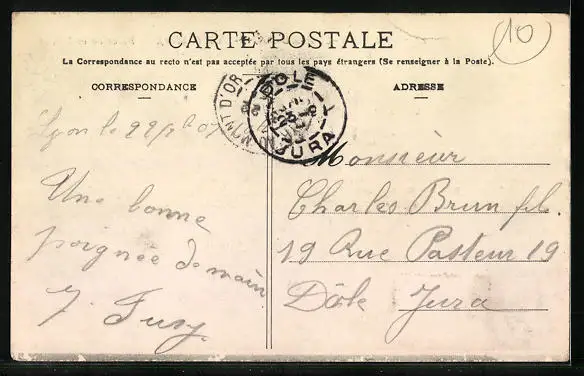 10
CARTE POSTALE
La Correspondance au recto n'est pas acceptée par tous les pays étrangers (Se renseigner à la Poste).
CORRESPONDANCE
ADRESSE
MONT D'OR
DOLE
JURA
Lyon le 22/
Une bonne
poignée de main
Monsieur
Charles Brun fils.
19 Rue Pasteur 19
Dôle Jura